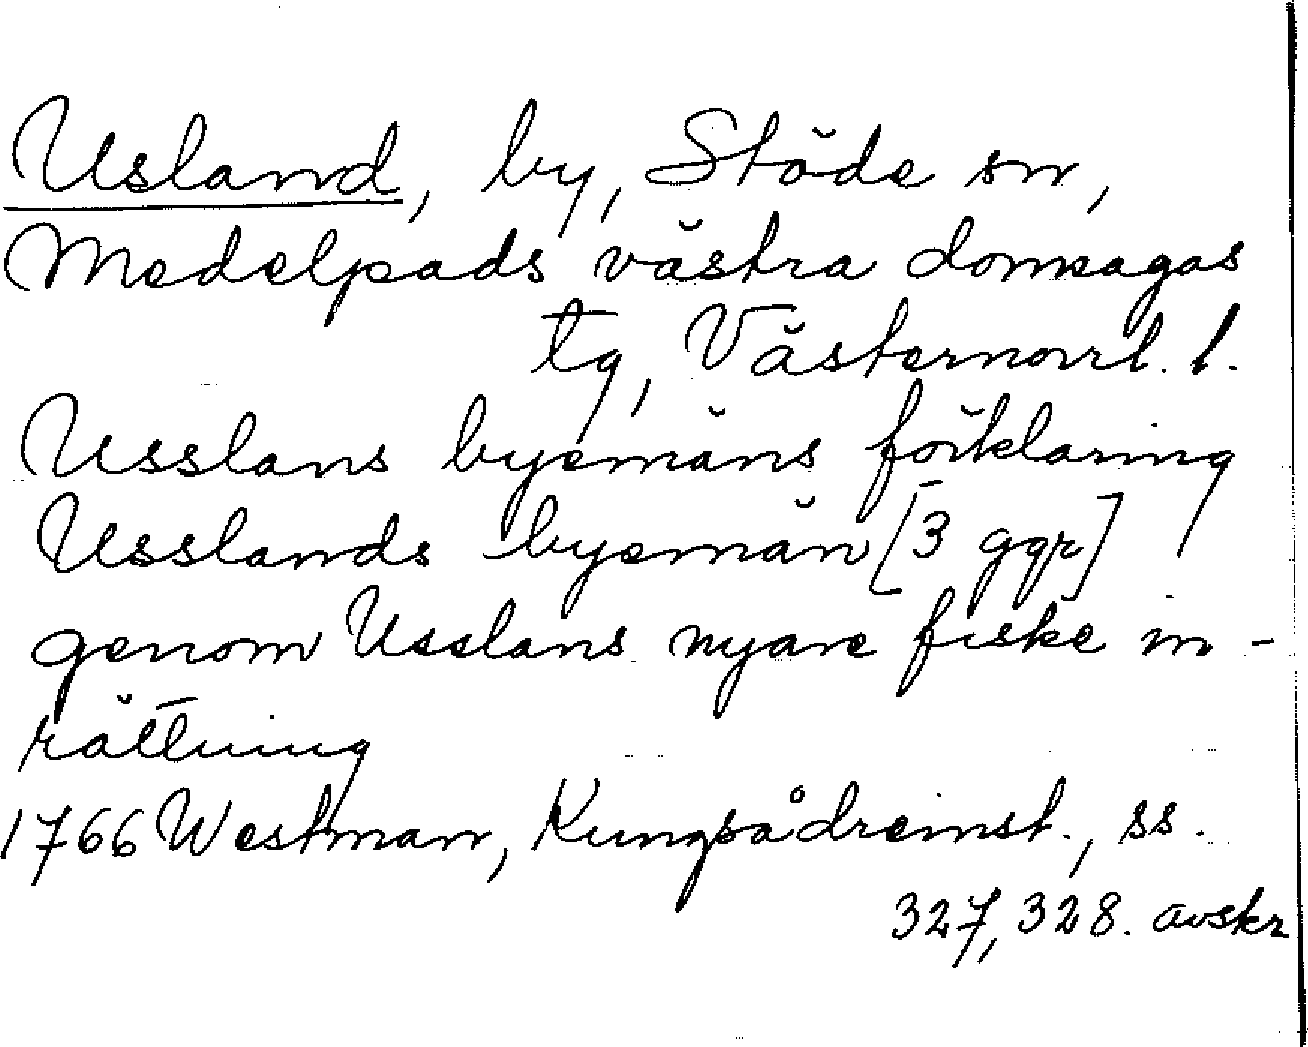 Usland, by, Stöde sn,
Medelpads västra domsagas
tg, Västernorrl. l.
Usslans byemäns förklaring
Usslands byemän [3 ggr]
genom Usslans nyare fiske in-
rättning
1766 Westman, Kungsådreinst., ss.
327, 328. avskr